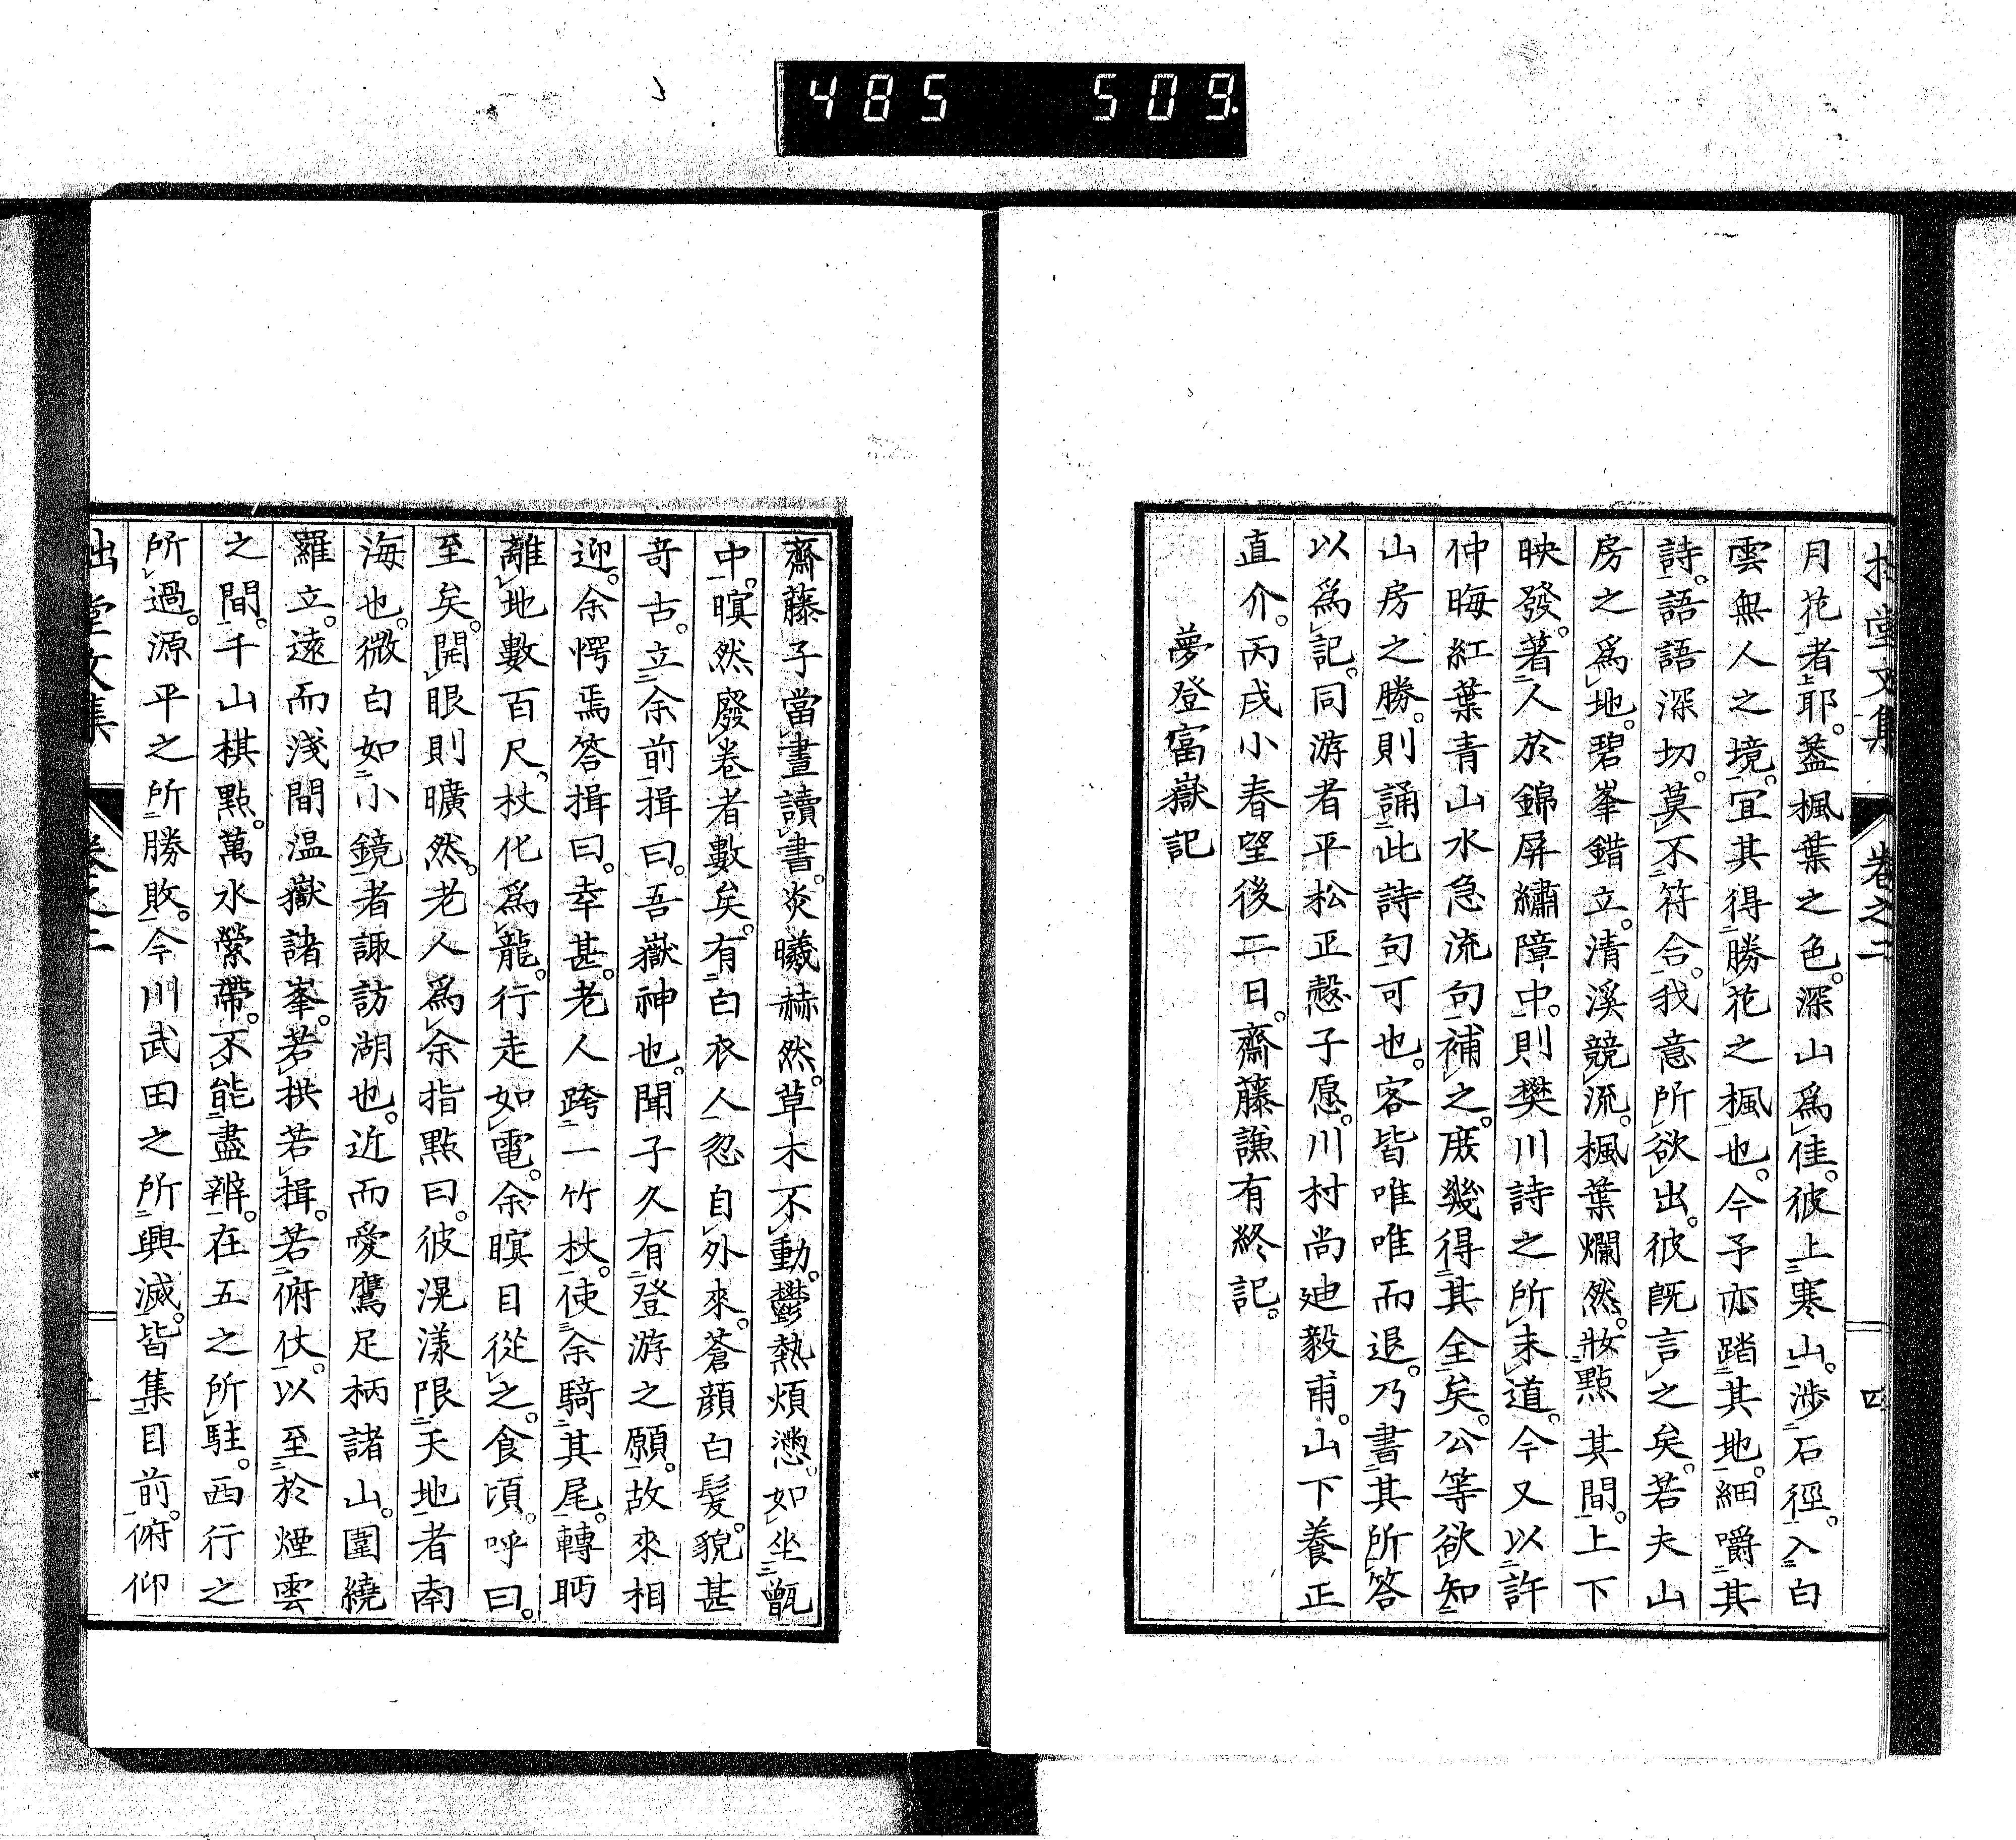 485 509.
堂文集 卷之二 四
月花者耶。蓋楓葉之色。深山爲佳。彼上寒山。渉石徑。入白
雲無人之境。宜其得勝花之楓也。今予亦踏其地。細嚼其
詩。語語深切。莫不符合。我意所欲出。彼既言之矣。若夫山
房之爲地。碧峯錯立。清溪競流。楓葉爛然。妝點其間。上下
映發。著人於錦屏繡障中。則樊川詩之所未道。今又以許
仲晦紅葉青山水急流句補之。庶幾得其全矣。公等欲知
山房之勝。則誦此詩句可也。客皆唯唯而退。乃書其所答
以爲記。同游者平松正慤子愿。川村尚迪毅甫。山下養正
直介。丙戌小春望後二日。齋藤謙有終記。
夢登富嶽記
齋藤子當晝讀書。炎曦赫然。草木不動。鬱熱煩懣。如坐甑
中。瞑然廢卷者數矣。有白衣人忽自外來。蒼顔白髮。貌甚
奇古。立余前揖曰。吾嶽神也。聞子久有登游之願。故來相
迎。余愕焉答揖曰。幸甚。老人跨一竹杖。使余騎其尾。轉眄
離地數百尺。杖化爲龍。行走如電。余瞑目從之。食頃。呼曰。
至矣。開眼則曠然。老人爲余指點曰。彼滉漾限天地者南
海也。微白如小鏡者諏訪湖也。近而愛鷹足柄諸山。圍繞
羅立。遠而淺間温嶽諸峯。若拱若揖。若俯伏。以至於煙雲
之間。千山棋點。萬水縈帶。不能盡辨。在五之所駐。西行之
所過。源平之所勝敗。今川武田之所興滅。皆集目前。俯仰
拙堂文集 卷之二